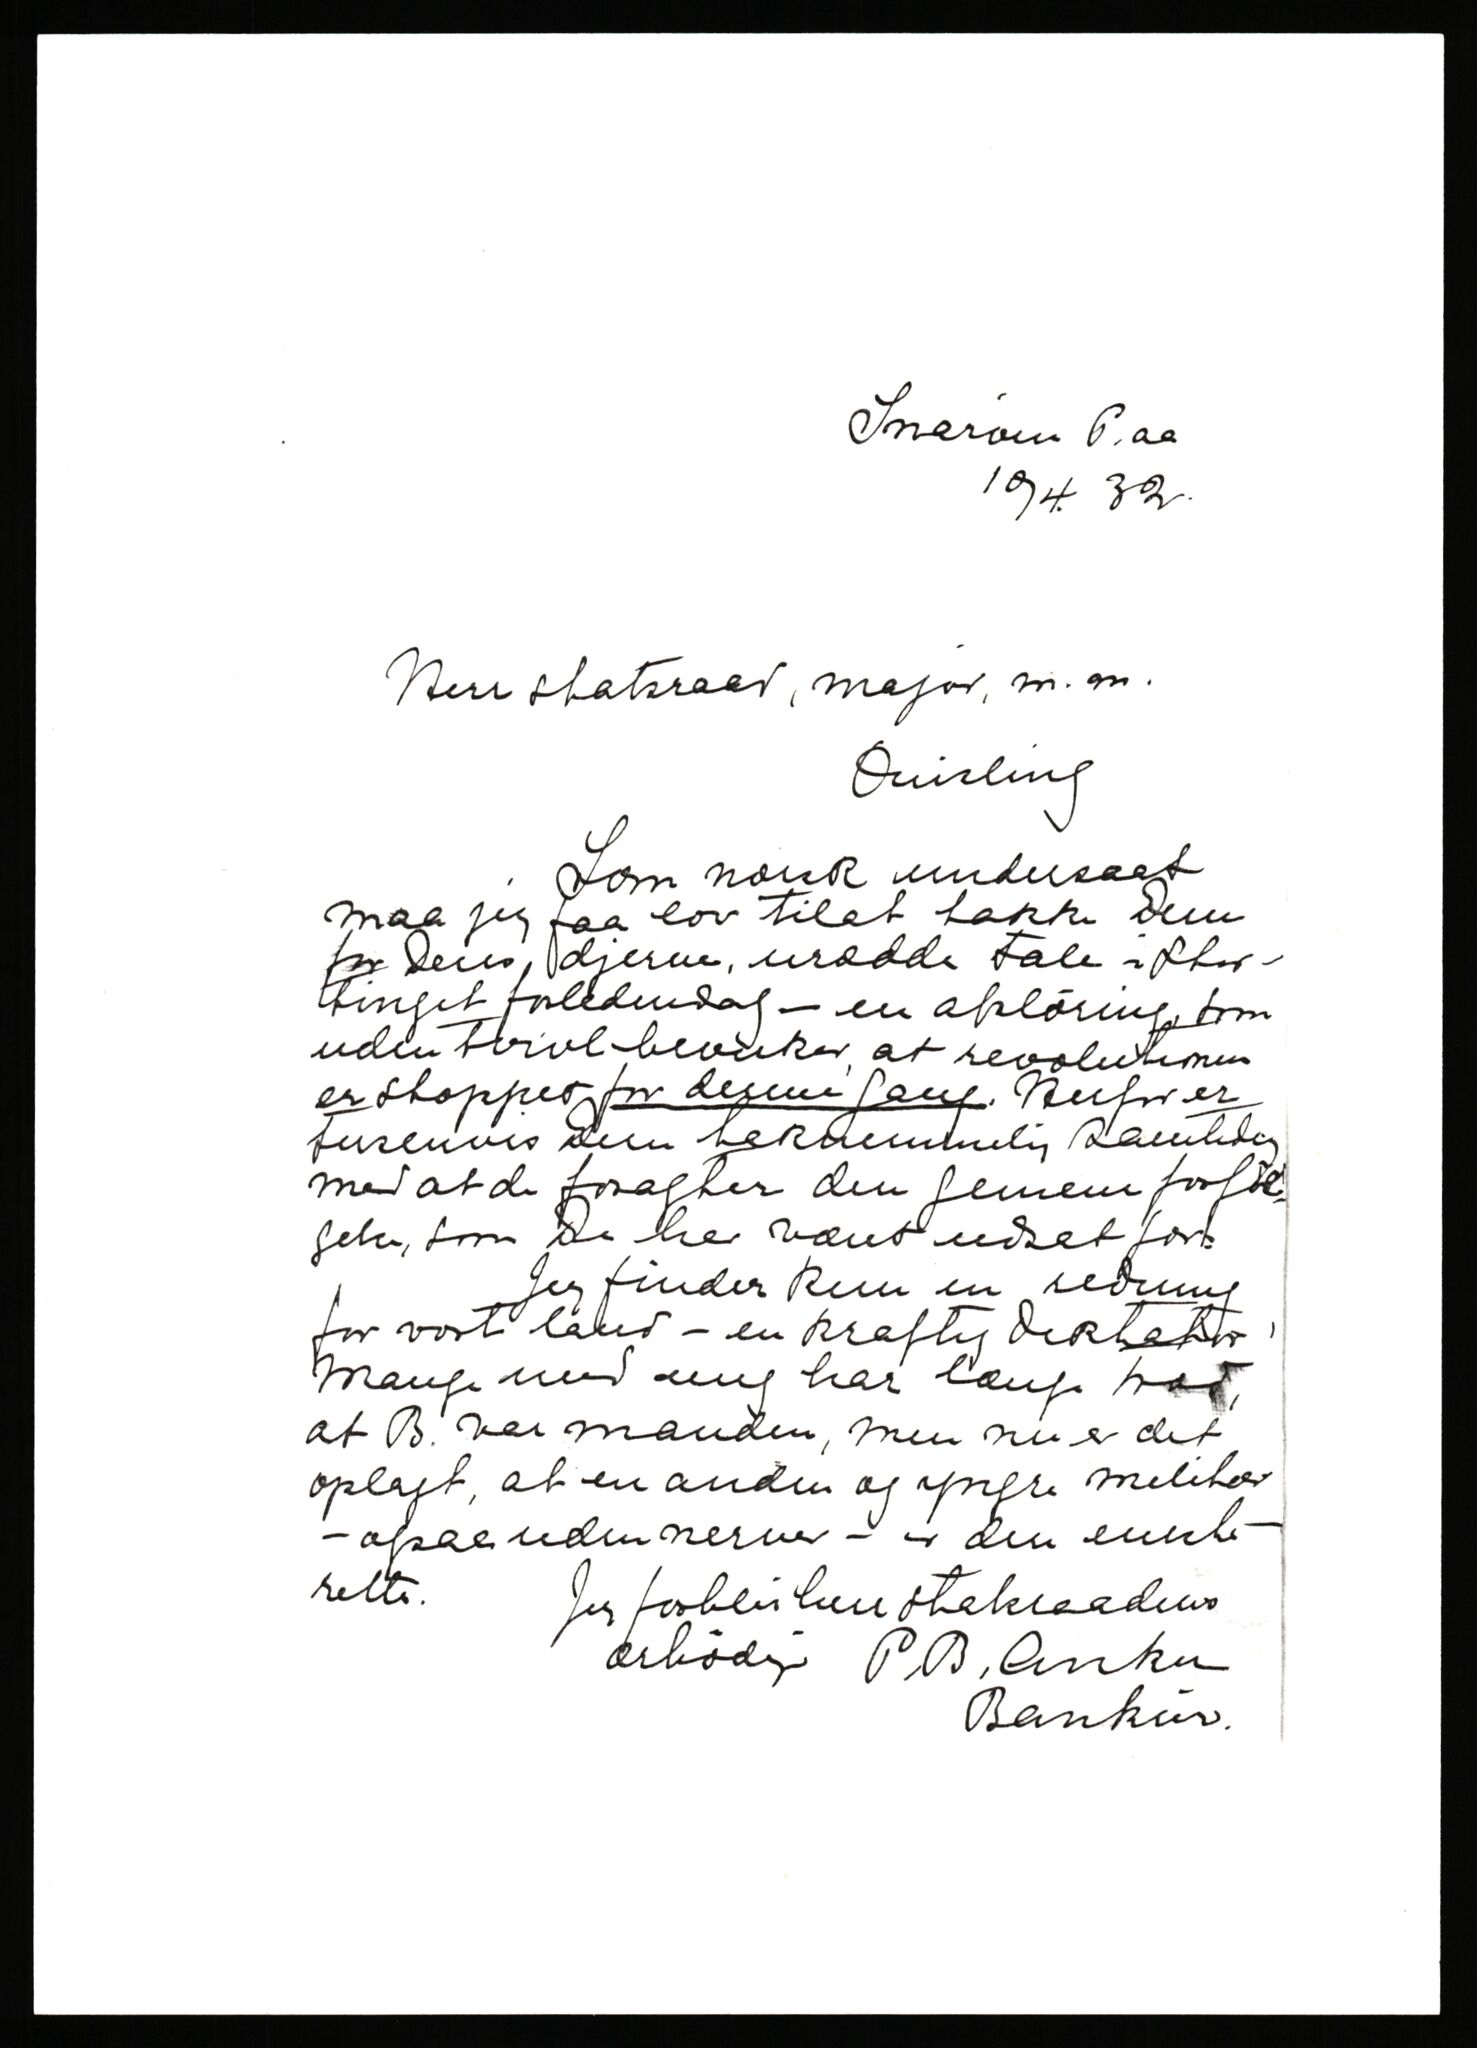 Snarøen P. aa
19/4. 32.
Herr statsraad, major, m. m.
Quisling
Som norsk undersaat
maa jeg faa lov til at takke Dem
for Deres djerve, urædde tale i Stor-
tinget forledendag – en afsløring, som
uden tvivl bevirker, at revolutionen
er stoppet for denne gang. Herfor er
tusenvis Dem taknemmelig samtidig
med at de foragter den gemene forføl-
gelse, som De har været udsat for.
Jeg finder kun en redning
for vort land – en kraftig diktator.
Mange med mig har længe trod,
at B. var manden, men nu er det
oplagt, at en anden og yngre militær
– ogsaa uden nerver – er den eneste
rette.
Jeg forblir herr statsraadens
ærbødige P. B. Anker
Bankier.